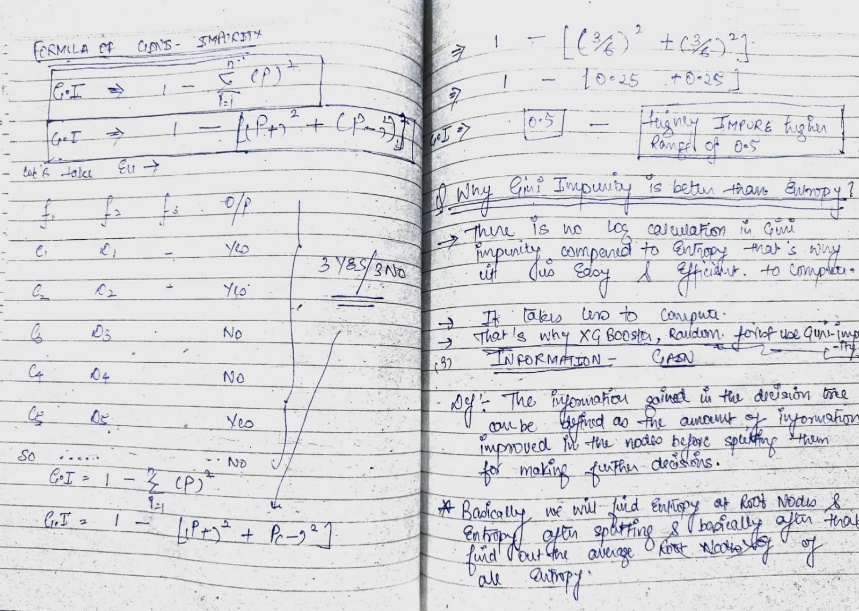 FORMULA OF GINI - IMPAIRITY
G.I ⇒ 1 - n Σ i=1 (P)²
G.I ⇒ 1 - [(P+)² + (P-)²]
Let's take Eu →
f₁ f₂ f₃ O/P
C₁ D₁ - Yes
C₂ D₂ - Yes
C₃ D₃ No
C₄ D₄ No
C₅ D₅ Yes
No
3 YES/3 NO
SO ......
G.I = 1 - n Σ i=1 (P)²
G.I = 1 - [(P+)² + P(-)²]
⇒ 1 - [(3/6)² + (3/6)²]
⇒ 1 - [0.25 + 0.25]
G.I ⇒ 0.5 - Highly IMPURE higher
Range of 0.5
Why Gini Impurity is better than Entropy?
→ There is no Log calculation in Gini
impurity compared to Entropy that's why
it is Easy & Efficient. to compute.
→ It takes less to compute.
→ That's why XG Booster, Random forest use Gini-imp
(3) INFORMATION - GAIN
Def:- The information gained in the decision tree
can be defined as the amount of information
improved in the nodes before splitting them
for making further decisions.
* Basically we will find Entropy at Root Nodes &
Entropy after splitting & basically after that
find out the average Root Nodes of of
all Entropy.